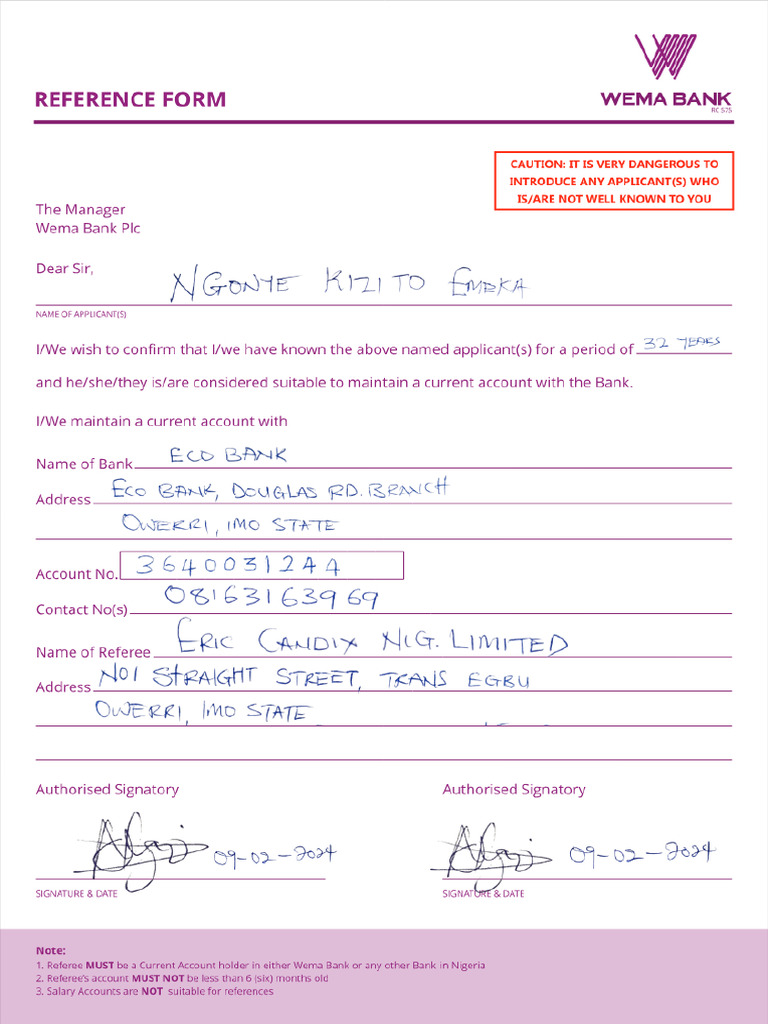 WEMA BANK
RC 575
REFERENCE FORM
CAUTION: IT IS VERY DANGEROUS TO
INTRODUCE ANY APPLICANT(S) WHO
IS/ARE NOT WELL KNOWN TO YOU
The Manager
Wema Bank Plc
Dear Sir,
NGONYE KIZITO EMEKA
NAME OF APPLICANT(S)
I/We wish to confirm that I/we have known the above named applicant(s) for a period of 32 YEARS
and he/she/they is/are considered suitable to maintain a current account with the Bank.
I/We maintain a current account with
Name of Bank ECO BANK
Address ECO BANK, DOUGLAS RD. BRANCH
OWERRI, IMO STATE
Account No. 3640031244
Contact No(s) 08163163969
Name of Referee ERIC CANDIX NIG. LIMITED
Address NO1 STRAIGHT STREET, TRANS EGBU
OWERRI, IMO STATE
Authorised Signatory Authorised Signatory
09-02-2024 09-02-2024
SIGNATURE & DATE SIGNATURE & DATE
Note:
1. Referee MUST be a Current Account holder in either Wema Bank or any other Bank in Nigeria
2. Referee's account MUST NOT be less than 6 (six) months old
3. Salary Accounts are NOT suitable for references